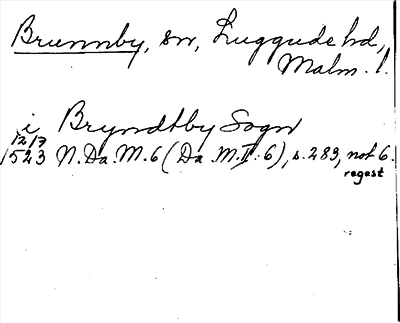 Brunnby, sn, Luggude hd,
Malm. l.
i Bryndtby Sogn
12/7
1523 N. Da. M. 6 (Da. M. II: 6), s. 283, not 6.
regest